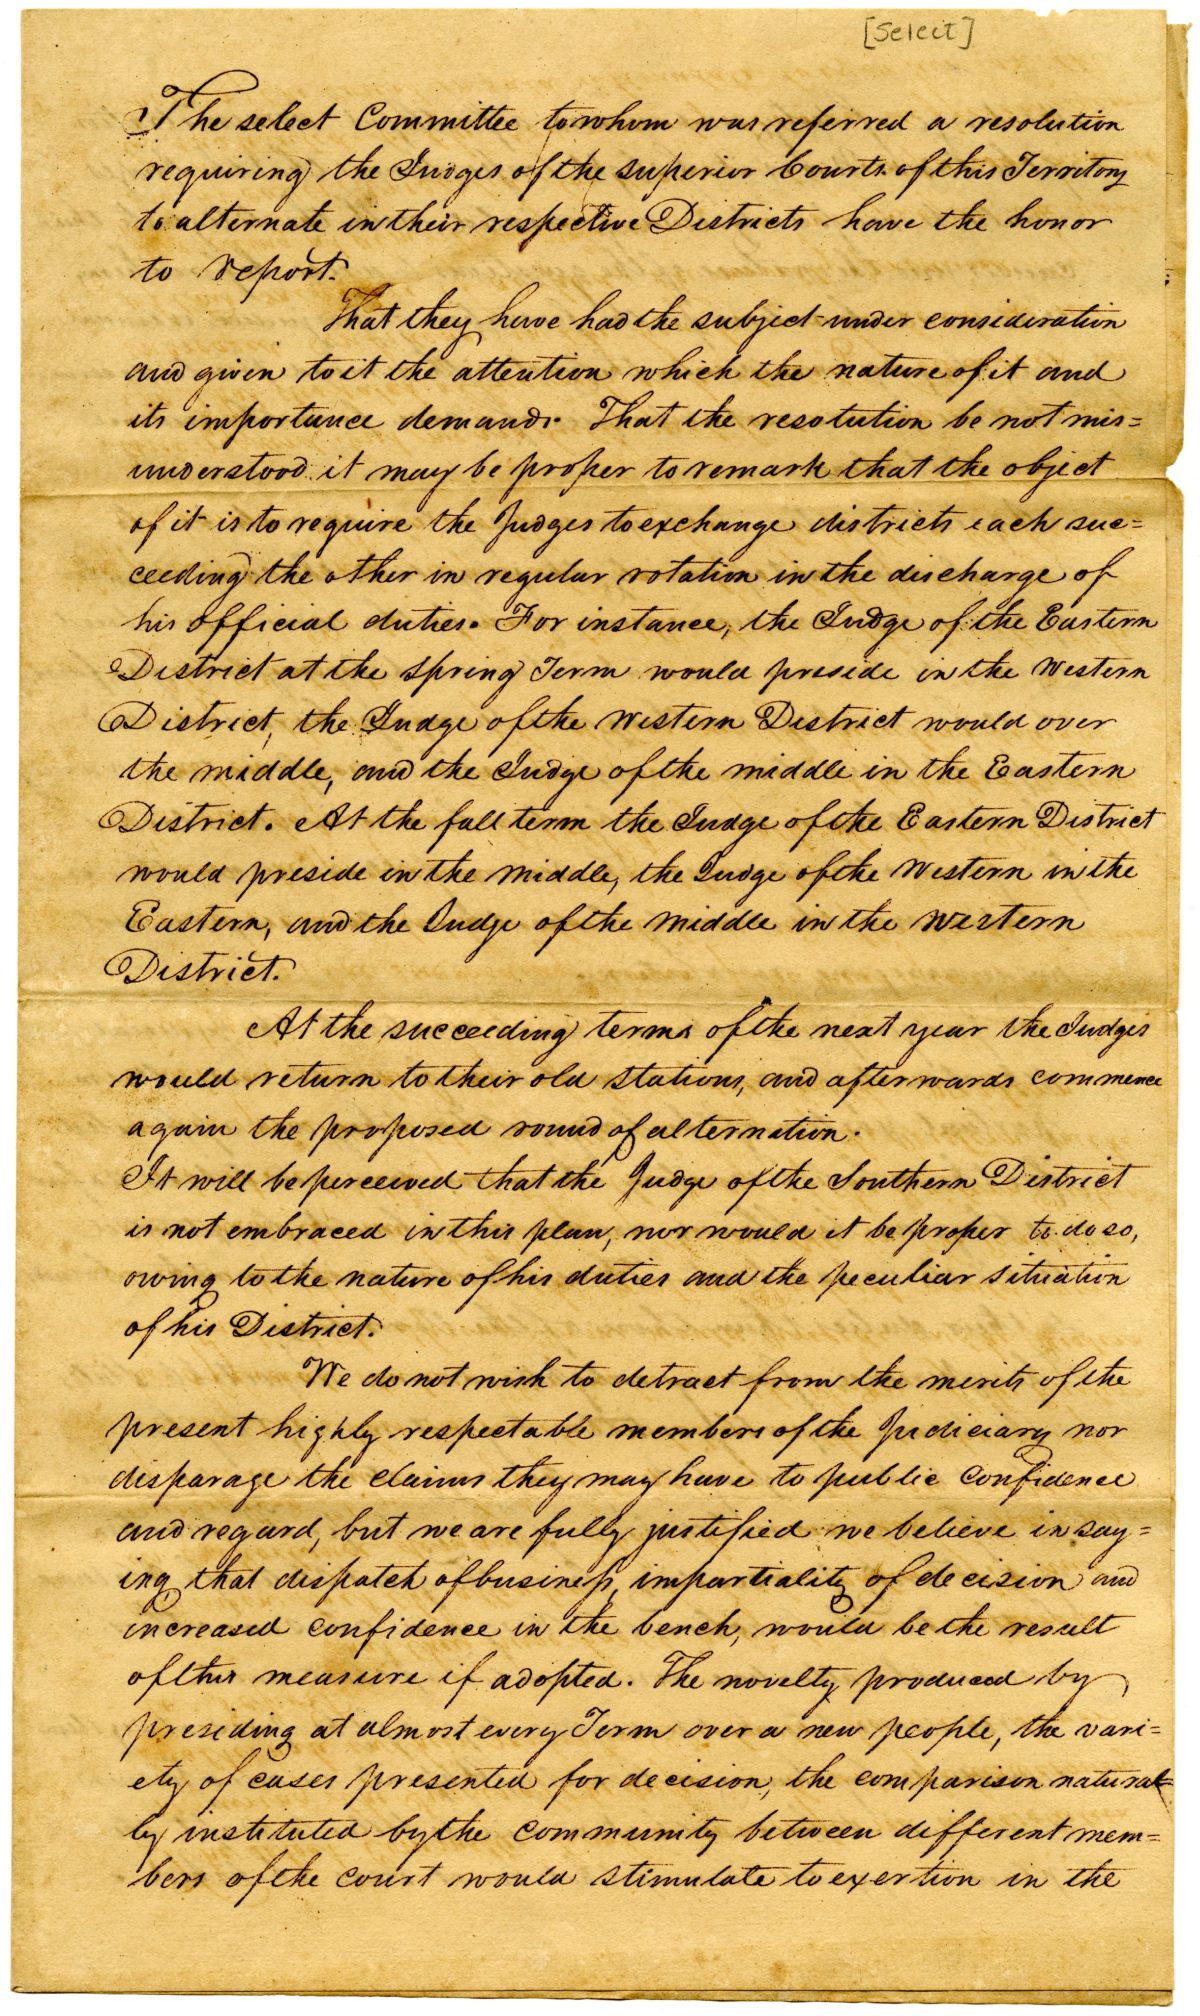 [Select]
The select Committee to whom was referred a resolution
requiring the Judges of the Superior Courts of this Territory
to alternate in their respective Districts have the honor
to report.
That they have had the subject under consideration
and given to it the attention which the nature of it and
its importance demands. That the resolution be not mis=
understood it may be proper to remark that the object
of it is to require the Judges to exchange districts each suc=
ceeding the other in regular rotation in the discharge of
his official duties. For instance, the Judge of the Eastern
District at the Spring Term would preside in the Western
District, the Judge of the Western District would over
the middle, and the Judge of the middle in the Eastern
District. At the fall term the Judge of the Eastern District
would preside in the Middle, the Judge of the Western in the
Eastern, and the Judge of the Middle in the Western
District.
At the succeeding terms of the next year the Judges
would return to their old stations, and afterwards commence
again the proposed round of alternation.
It will be perceived that the Judge of the Southern District
is not embraced in this plan, nor would it be proper to do so,
owing to the nature of his duties and the peculiar situation
of his District.
We do not wish to detract from the merits of the
present highly respectable members of the Judiciary nor
disparage the claims they may have to public confidence
and regard, but we are fully justified we believe in say=
ing that dispatch of business, impartiality of decision and
increased confidence in the bench, would be the result
of this measure if adopted. The novelty produced by
presiding at almost every Term over a new people, the vari=
ety of cases presented for decision, the comparison natural=
ly instituted by the community between different mem=
bers of the court would stimulate to exertion in the